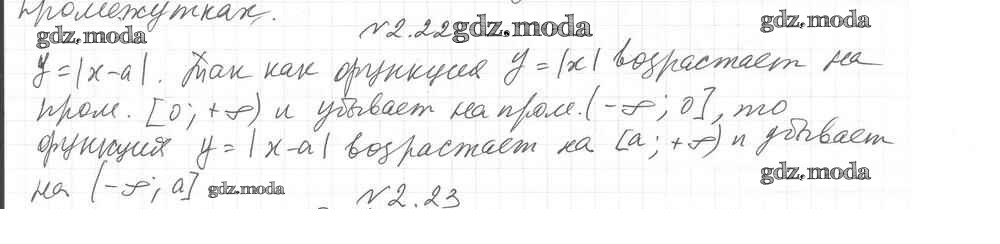 промежутках.
№2.22 gdz.moda gdz.moda
gdz.moda
y = |x-a|. Так как функция y = |x| возрастает на
пром. [0; +∞) и убывает на пром. (-∞; 0], то
функция y = |x-a| возрастает на [a; +∞) и убывает
gdz.moda
на (-∞; a] gdz.moda
№2.23